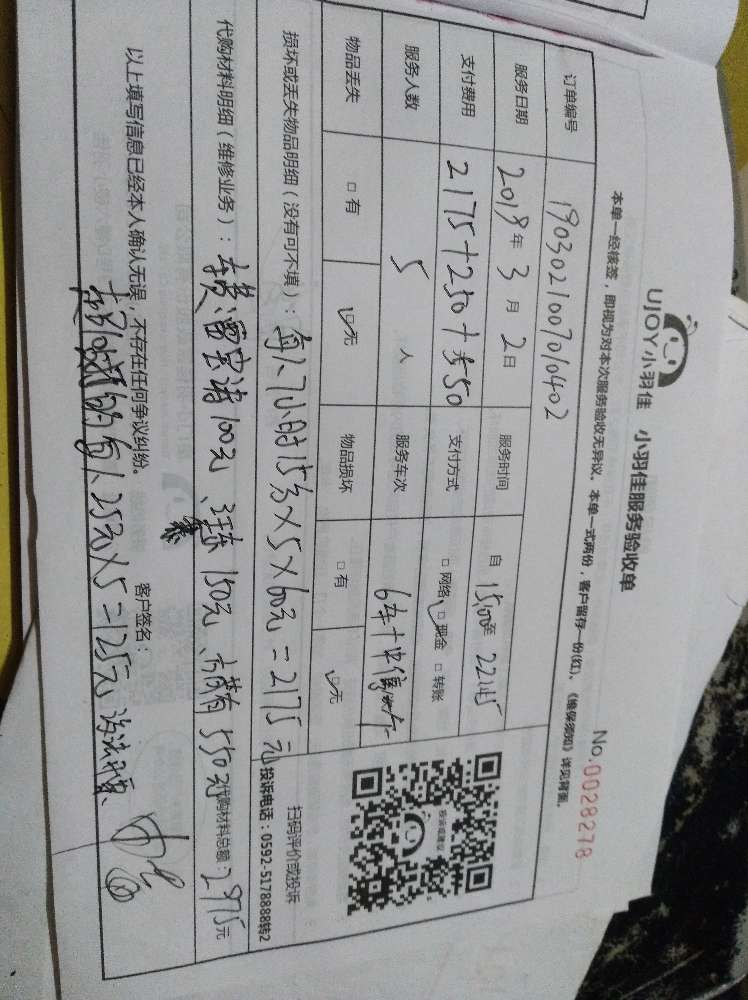 UJOY小羽佳 小羽佳服务验收单
No.0028278
本单一经核签，即视为对本次服务验收无异议。本单一式两份，客户留存一份(红)、《维保须知》详见背面。
订单编号 1903021007010402
服务日期 2019年3月2日 服务时间 自15:00至22:45
支付费用 2175+250+550 支付方式 □网络 ☑现金 □转账
服务人数 5人 服务车次 6车
物品丢失 □有 ☑无 物品损坏 □有 ☑无
损坏或丢失物品明细（没有可不填）：每人7小时15分×5×60元=2175元
代购材料明细（维修业务）： 100元、 150元、 550元 代购材料总额：2975元
以上填写信息已经本人确认无误，不存在任何争议纠纷。 客户签名：
每人25元×5=125元
扫码评价或投诉
投诉电话：0592-5178888转2
投诉或建议